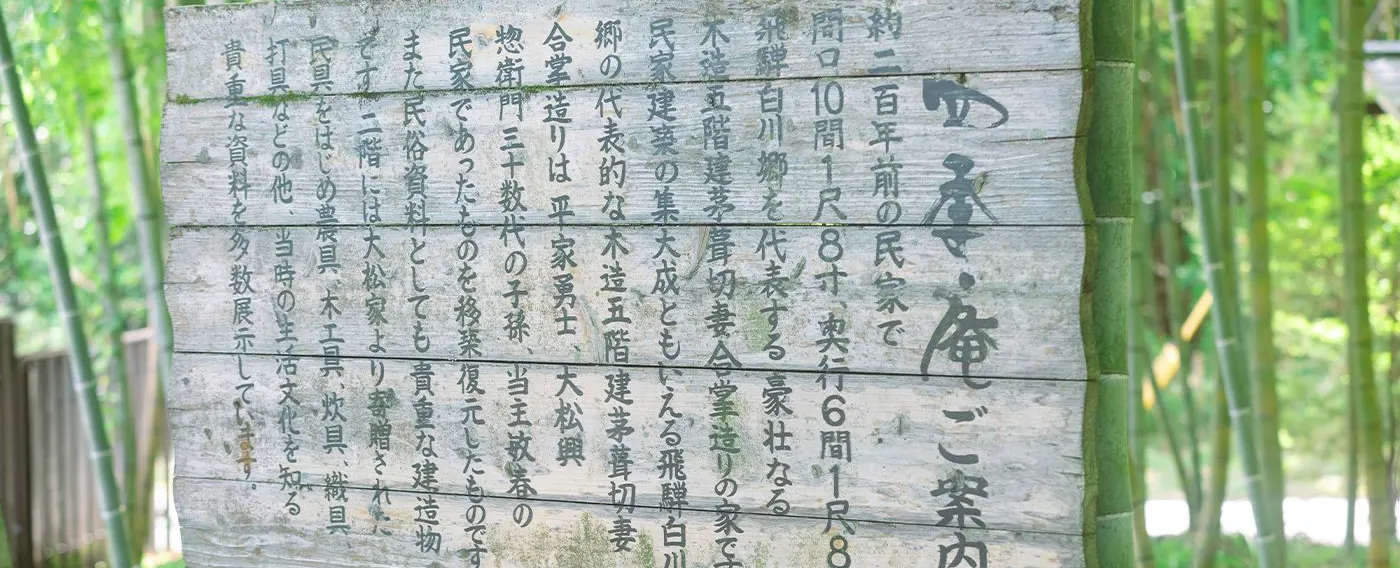 四季の庵ご案内
約二百年前の民家で
間口10間1尺8寸、奥行6間1尺8
飛騨白川郷を代表する豪壮なる
木造五階建茅葺切妻合掌造りの家です
民家建築の集大成ともいえる飛騨白川
郷の代表的な木造五階建茅葺切妻
合掌造りは平家勇士、大松興
惣衛門三十数代の子孫、当主敏春の
民家であったものを移築復元したものです
また民俗資料としても貴重な建造物
です二階には大松家より寄贈された
民具をはじめ農具、木工具、炊具、織具、
打具などの他、当時の生活文化を知る
貴重な資料を多数展示しています。